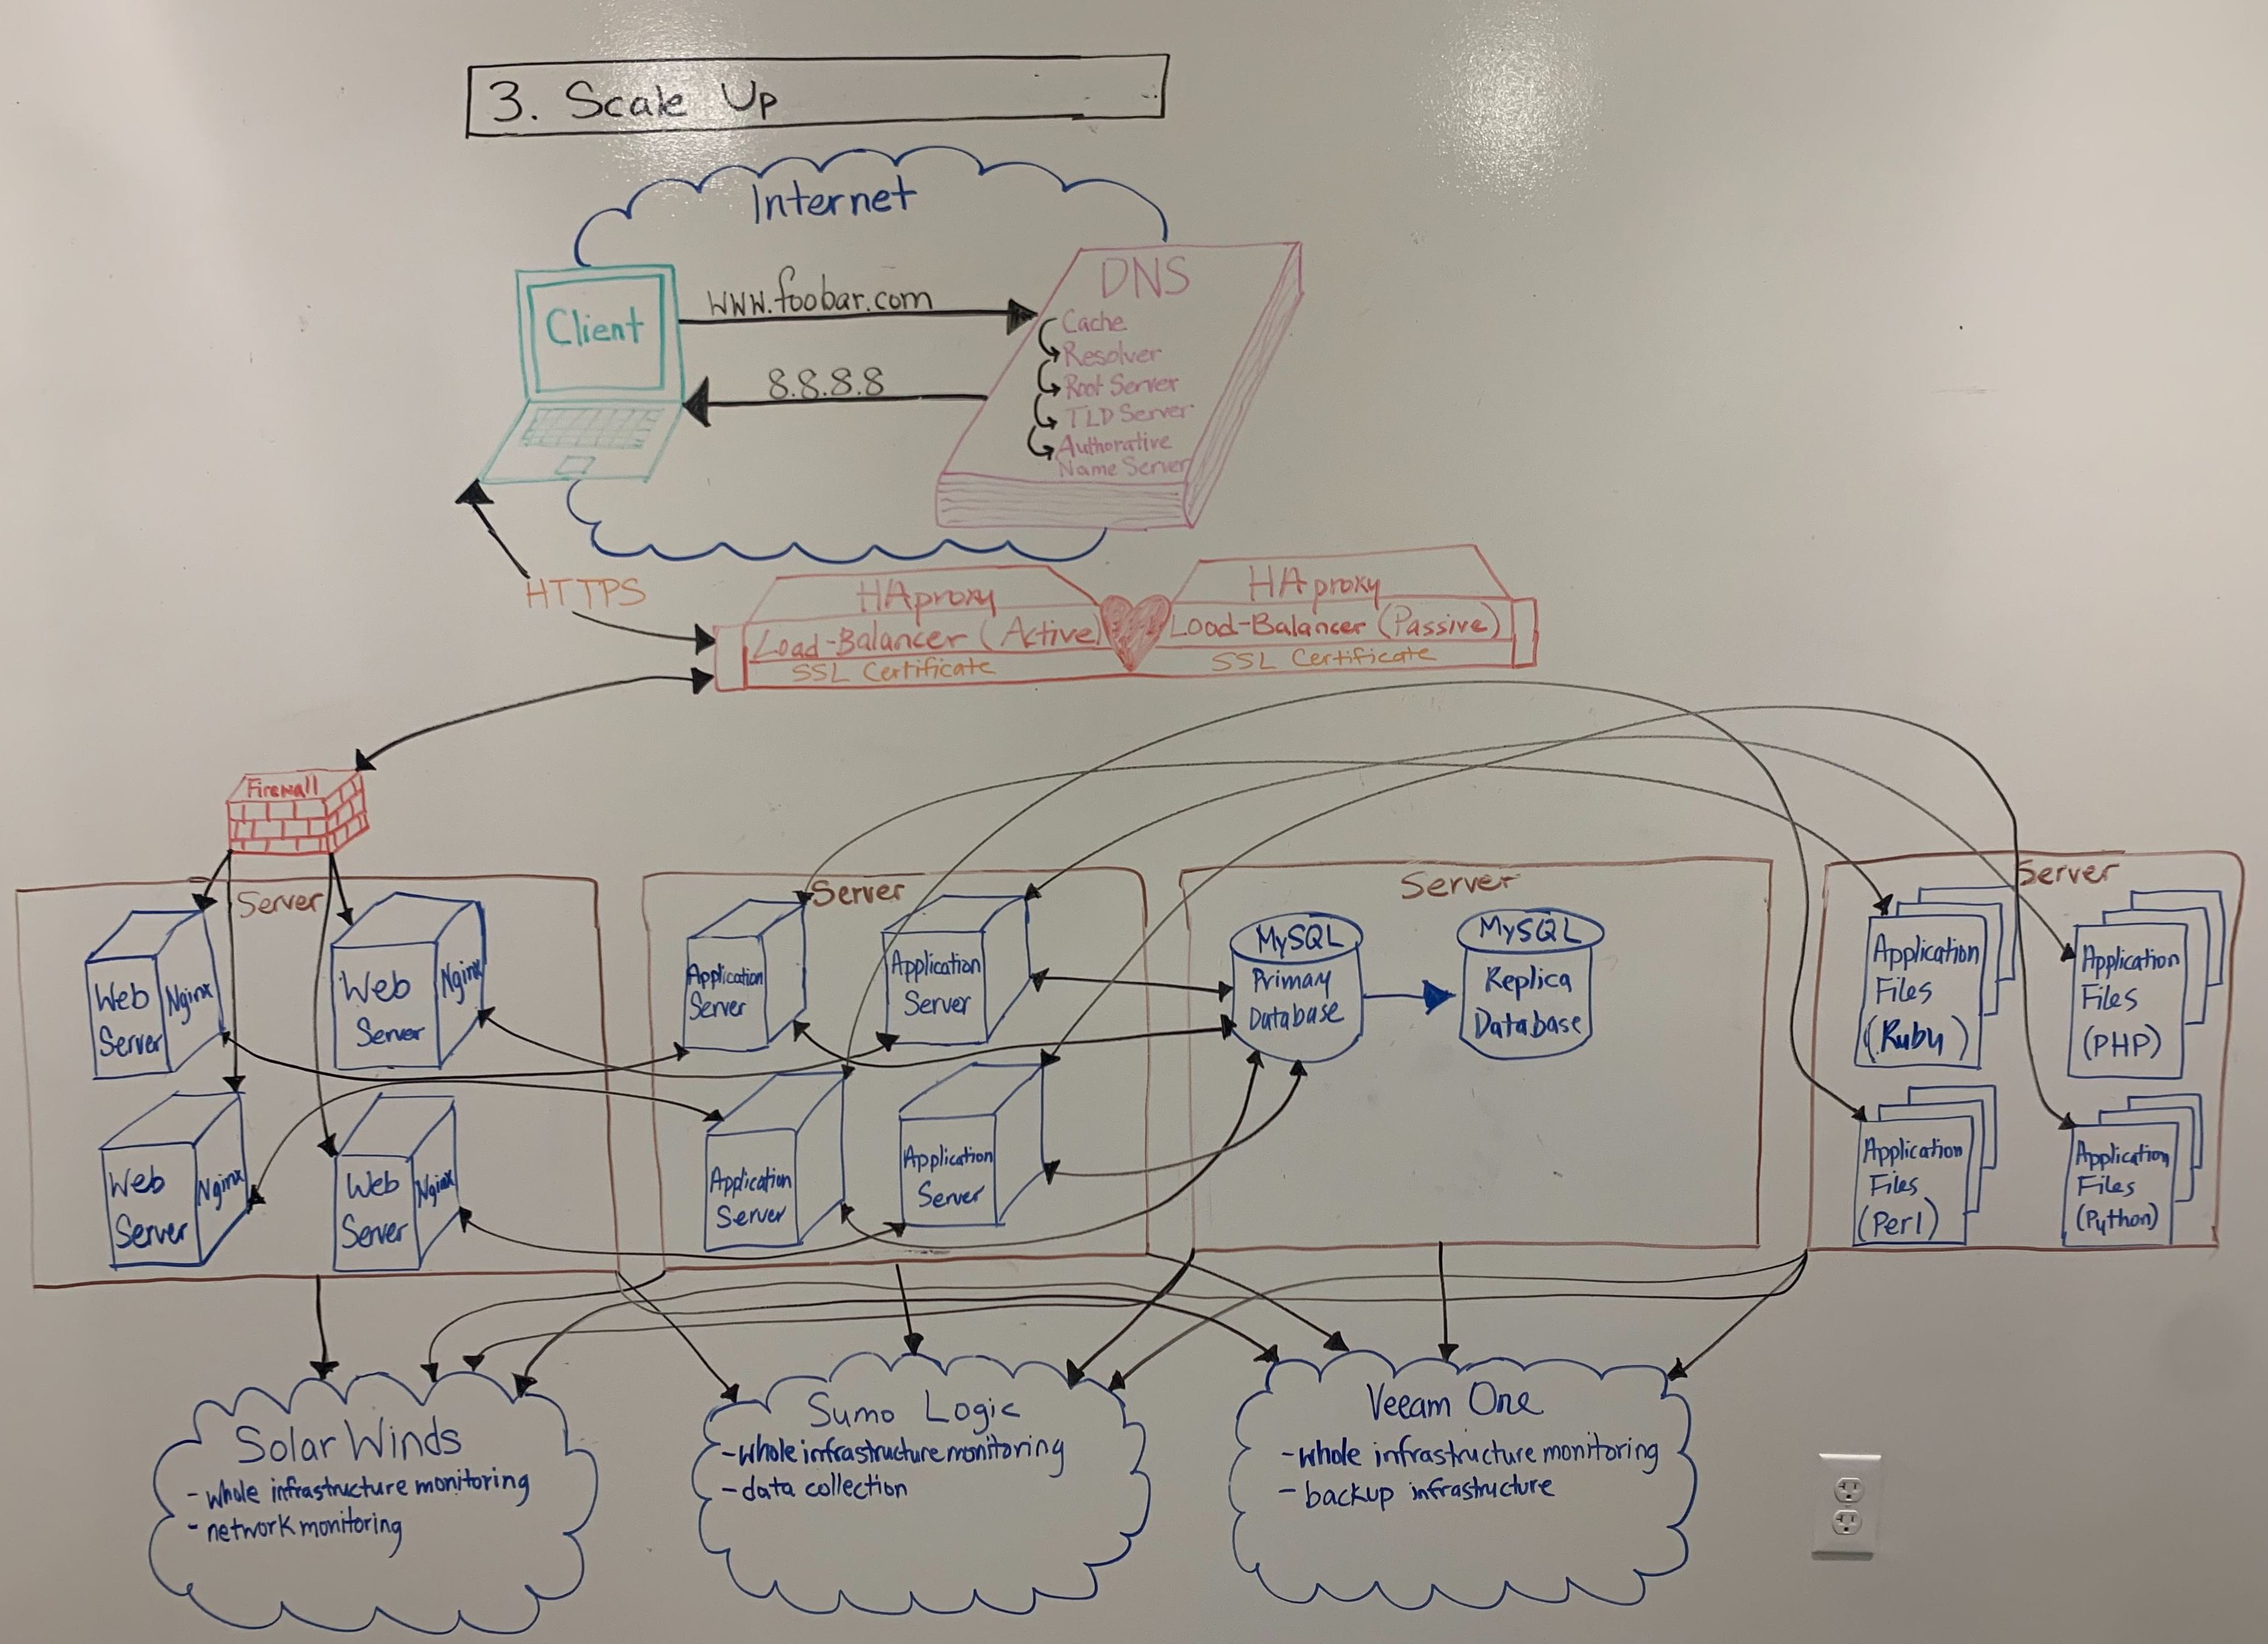 3. Scale Up
Internet
Client
www.foobar.com
8.8.8.8
DNS
Cache
Resolver
Root Server
TLD Server
Authorative
Name Server
HTTPS
HAproxy
Load-Balancer (Active)
SSL Certificate
HAproxy
Load-Balancer (Passive)
SSL Certificate
Firewall
Server
Web
Server
Nginx
Web
Server
Nginx
Web
Server
Nginx
Web
Server
Nginx
Server
Application
Server
Application
Server
Application
Server
Application
Server
Server
MySQL
Primary
Database
MySQL
Replica
Database
Server
Application
Files
(Ruby)
Application
Files
(PHP)
Application
Files
(Perl)
Application
Files
(Python)
Solar Winds
- whole infrastructure monitoring
- network monitoring
Sumo Logic
- whole infrastructure monitoring
- data collection
Veeam One
- whole infrastructure monitoring
- backup infrastructure